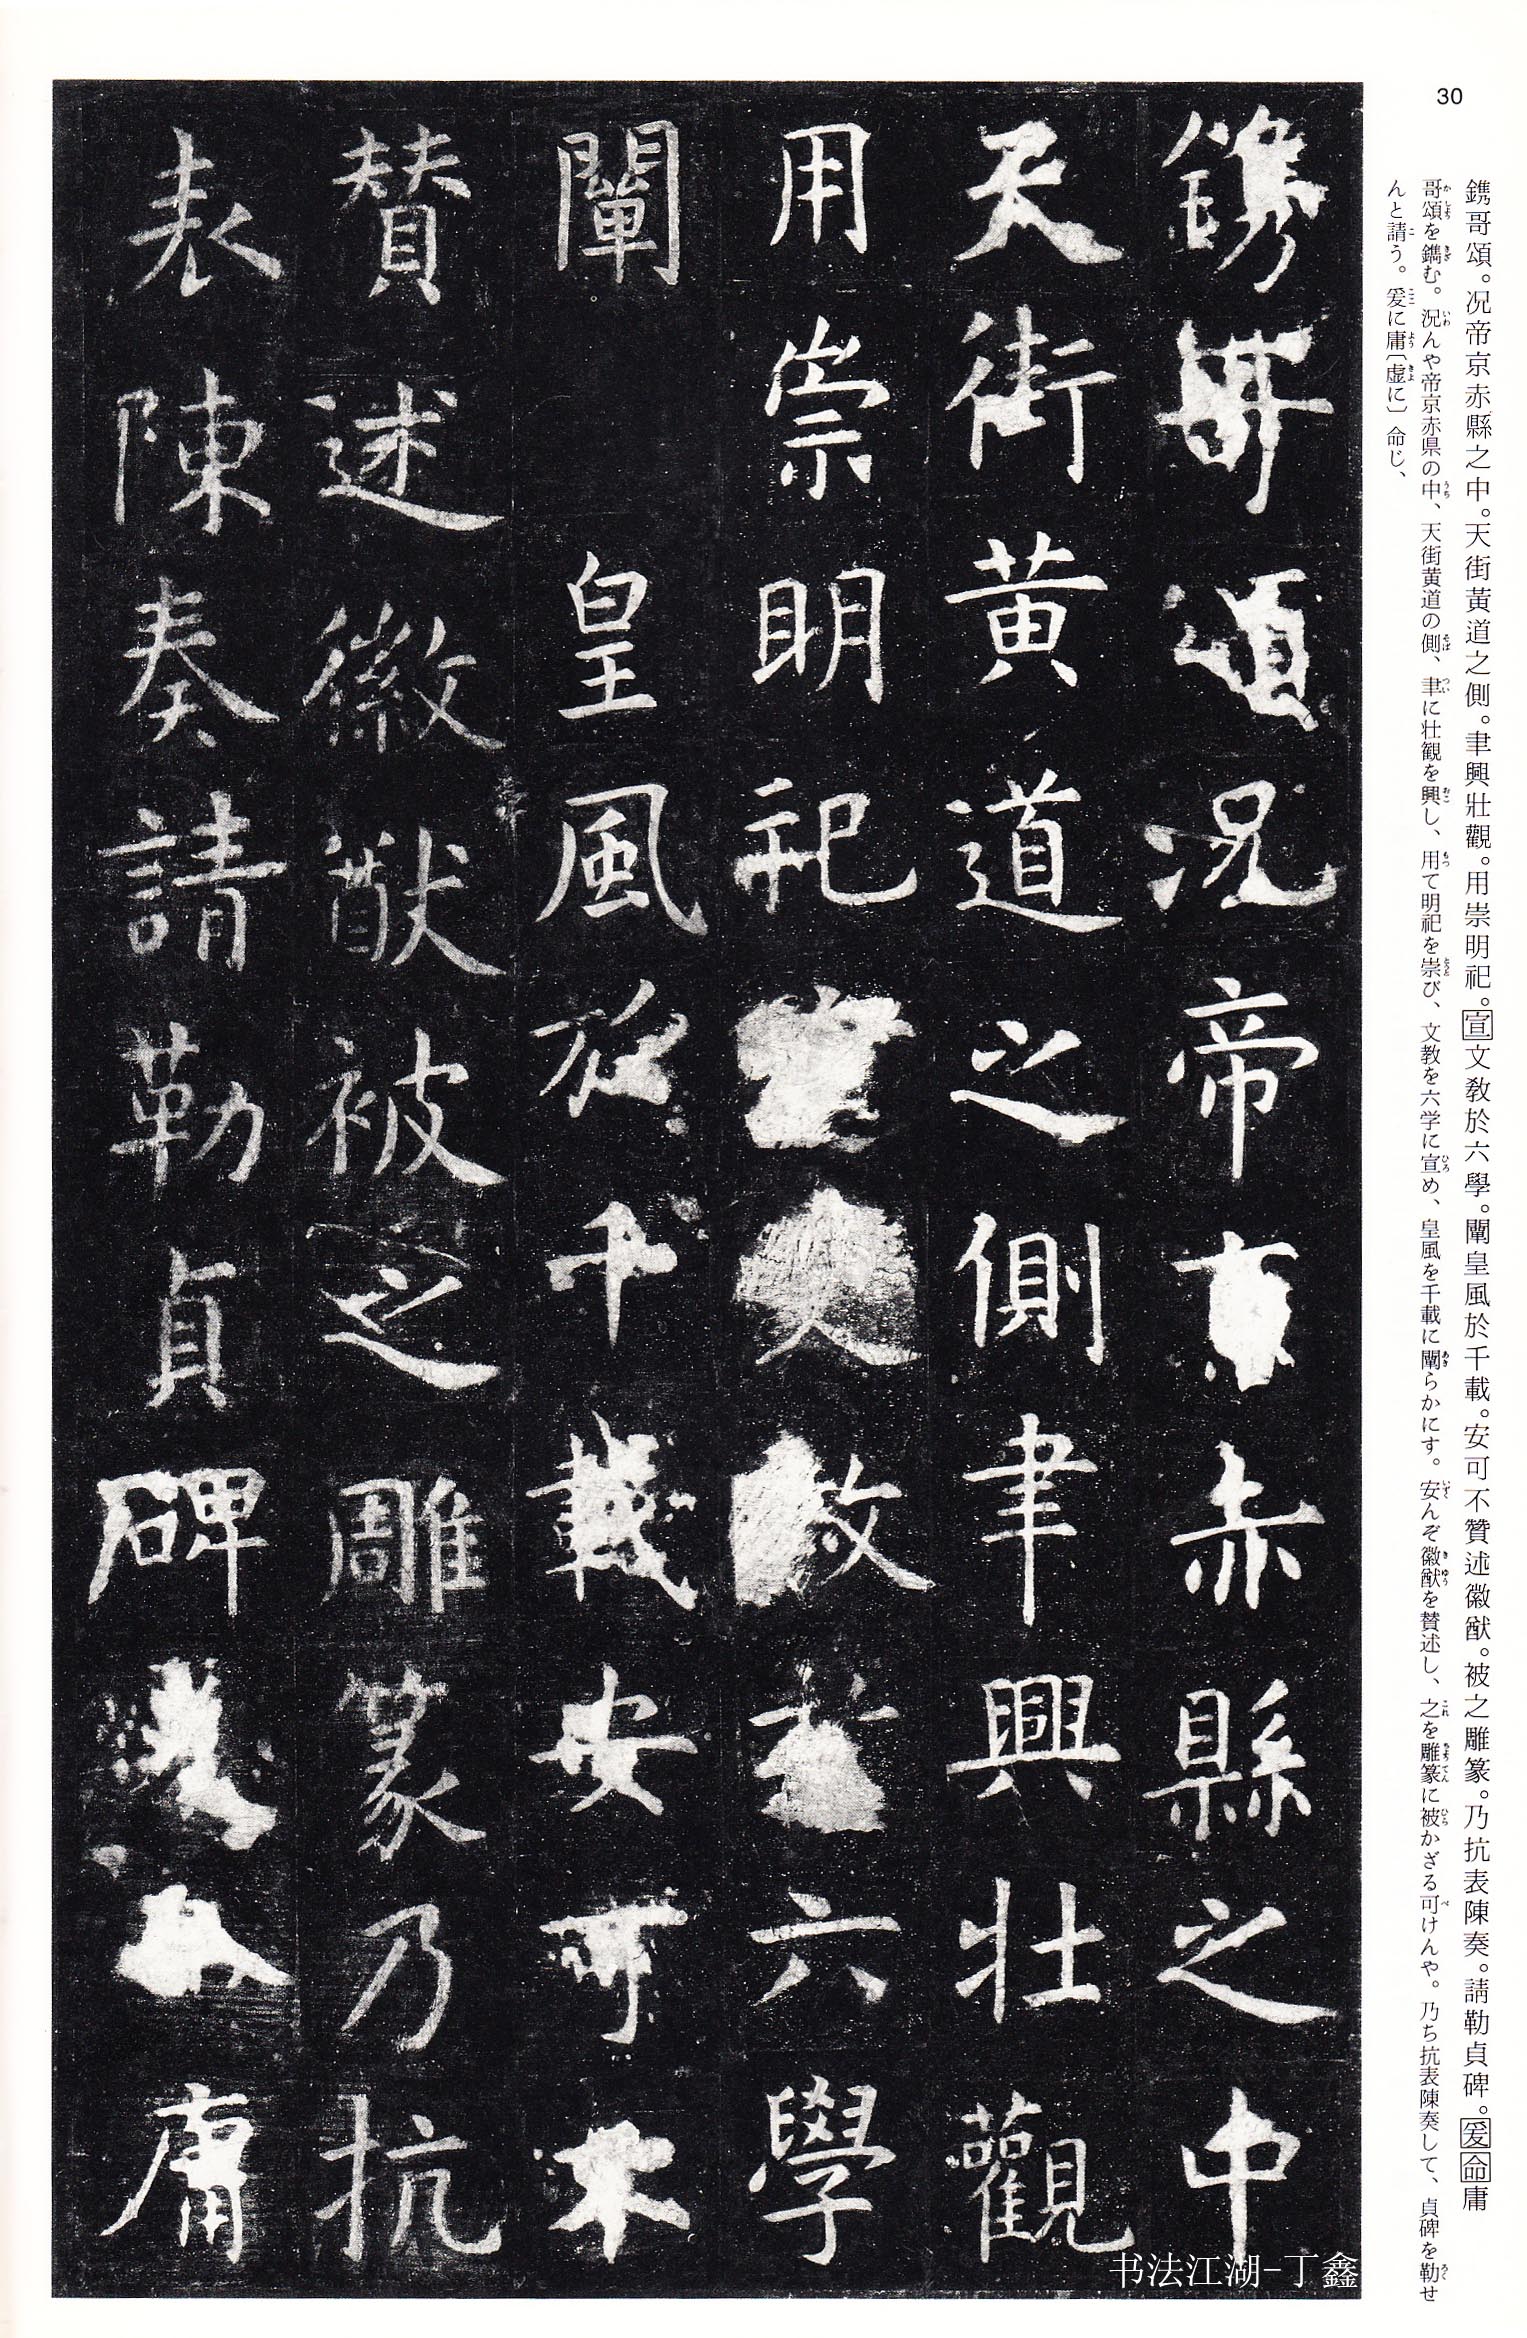 30
鐫哥頌。况帝京赤縣之中。天街黃道之側。聿興壯觀。用崇明祀。宣文敎於六學。闡皇風於千載。安可不贊述徽猷。被之雕篆。乃抗表陳奏。請勒貞碑。爰命庸
哥頌を鐫む。況んや帝京赤県の中、天街黄道の側、聿に壮観を興し、用て明祀を崇び、文教を六学に宣め、皇風を千載に闡らかにす。安んぞ徽猷を賛述し、之を雕篆に被かざる可けんや。乃ち抗表陳奏して、貞碑を勒せ
んと請う。爰に庸〔虚に〕命じ、
鐫哥頌况帝京赤縣之中
天街黃道之側聿興壯觀
用崇明祀宣文敎於六學
闡皇風於千載安可不
贊述徽猷被之雕篆乃抗
表陳奏請勒貞碑爰命庸
书法江湖-丁鑫